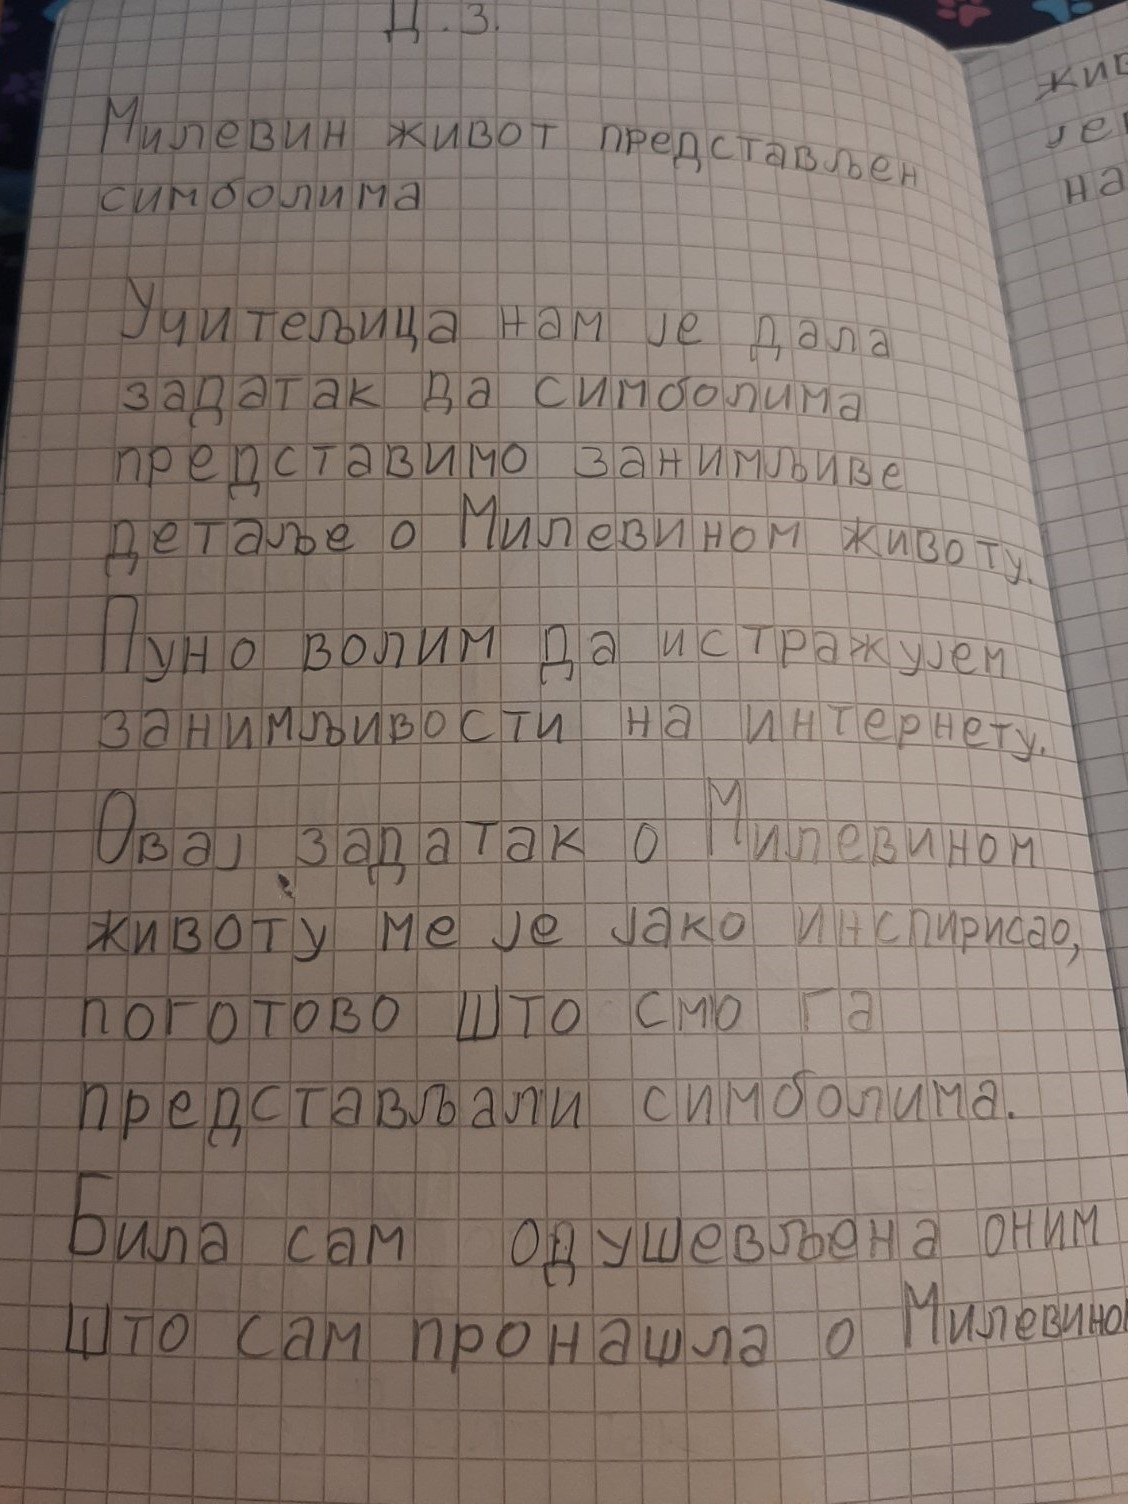 Д.З.
Милевин живот представљен
симболима
Учитељица нам је дала
задатак да симболима
представимо занимљиве
детаље о Милевином животу.
Пуно волим да истражујем
занимљивости на интернету.
Овај задатак о Милевином
животу ме је јако инспирисао,
поготово што смо га
представљали симболима.
Била сам одушевљена оним
што сам пронашла о